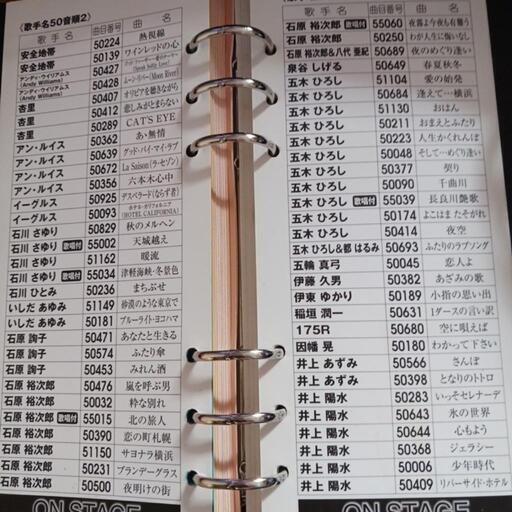 《歌手名50音順2》
歌手名 曲目番号 曲名
安全地帯 50224 熱視線
安全地帯 50139 ワインレッドの心
アンディ・ウイリアムス (Andy Williams) 50427
アンディ・ウイリアムス (Andy Williams) 50428 ムーン・リバー (Moon River)
杏里 50407 オリビアを聴きながら
杏里 50412 悲しみがとまらない
杏里 50289 CAT'S EYE
アン・ルイス 50362 あゝ無情
アン・ルイス 50639 グッド・バイ・マイ・ラブ
アン・ルイス 50672 La Saison (ラ・セゾン)
アン・ルイス 50356 六本木心中
イーグルス 50925 デスペラード(ならず者)
イーグルス 50093 ホテル・カリフォルニア (HOTEL CALIFORNIA)
石川 さゆり 50829 秋のメルヘン
石川 さゆり 歌唱付 55002 天城越え
石川 さゆり 51162 暖流
石川 さゆり 歌唱付 55034 津軽海峡・冬景色
石川 ひとみ 50236 まちぶせ
いしだ あゆみ 51149 砂漠のような東京で
いしだ あゆみ 50181 ブルーライト・ヨコハマ
石原 詢子 50471 あなたと生きる
石原 詢子 50574 ふたり傘
石原 詢子 50453 みれん酒
石原 裕次郎 50476 嵐を呼ぶ男
石原 裕次郎 50032 粋な別れ
石原 裕次郎 歌唱付 55015 北の旅人
石原 裕次郎 50390 恋の町札幌
石原 裕次郎 51150 サヨナラ横浜
石原 裕次郎 50231 ブランデーグラス
石原 裕次郎 50500 夜明けの街
ON STAGE
歌手名 曲目番号 曲名
石原 裕次郎 歌唱付 55060 夜霧よ今夜も有難う
石原 裕次郎 50250 わが人生に悔いなし
石原 裕次郎&八代 亜紀 50689 夜のめぐり逢い
泉谷 しげる 50649 春夏秋冬
五木 ひろし 51104 愛の始発
五木 ひろし 50684 逢えて…横浜
五木 ひろし 51130 おはん
五木 ひろし 50211 おまえとふたり
五木 ひろし 50223 人生かくれんぼ
五木 ひろし 50048 そして…めぐり逢い
五木 ひろし 50377 契り
五木 ひろし 50090 千曲川
五木 ひろし 歌唱付 55039 長良川艶歌
五木 ひろし 50174 よこはま たそがれ
五木 ひろし 50414 夜空
五木 ひろし&都 はるみ 50693 ふたりのラブソング
五輪 真弓 50045 恋人よ
伊藤 久男 50382 あざみの歌
伊東 ゆかり 50189 小指の思い出
稲垣 潤一 50631 1ダースの言い訳
175R 50680 空に唄えば
因幡 晃 50180 わかって下さい
井上 あずみ 50566 さんぽ
井上 あずみ 50398 となりのトトロ
井上 陽水 50283 いっそセレナーデ
井上 陽水 50643 氷の世界
井上 陽水 50644 心もよう
井上 陽水 50368 ジェラシー
井上 陽水 50006 少年時代
井上 陽水 50409 リバーサイド・ホテル
ON STAGE